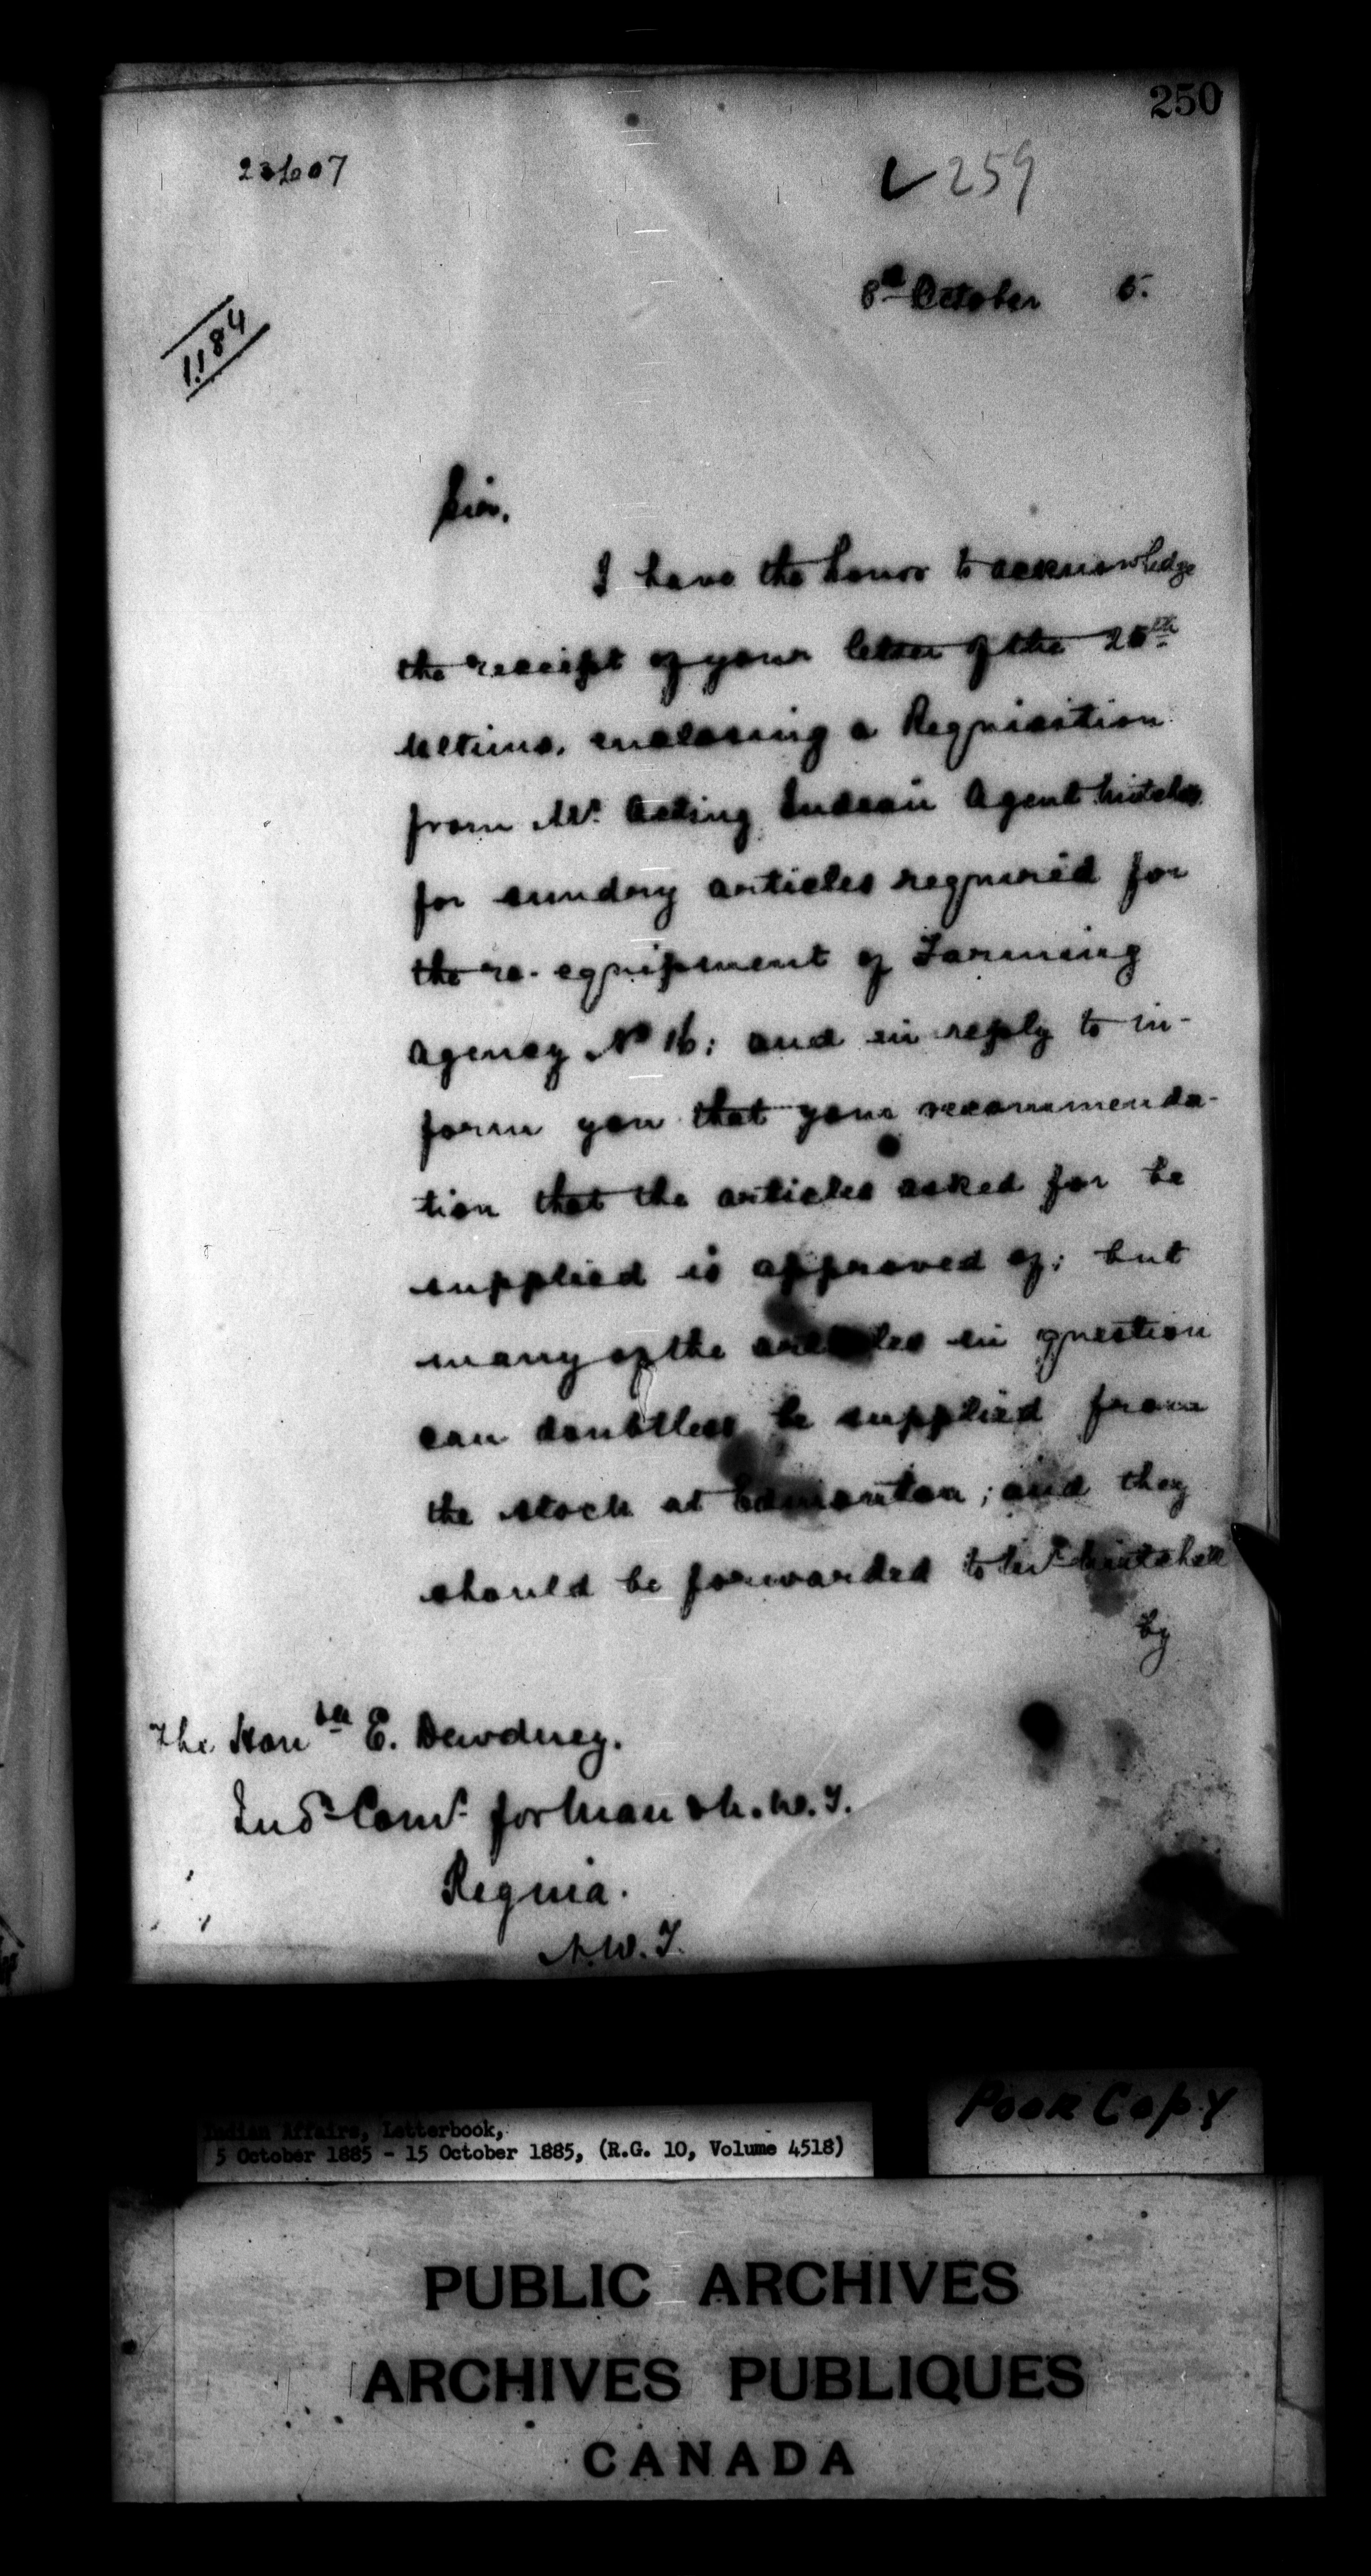 250
259
8th October 5.
1184
Sir,
I have the honor to acknowledge
the receipt of your letter of the 25th
Ultimo, enclosing a Requisition
from Mr. Acting Indian Agent Mitchell
for sundry articles required for
the re-equipment of Farming
Agency No 16; and in reply to in-
form you that your recommenda-
tion that the articles asked for be
supplied is approved of; but
many of the articles in question
can doubtless be supplied from
the stock at Edmonton; and they
should be forwarded to Mr. Mitchell
by
The Honble E. Dewdney.
Indn Comr. for Man & N.W.T.
Regina.
N.W.T.
Poor Copy
Indian Affairs, Letterbook,
5 October 1885 - 15 October 1885, (R.G. 10, Volume 4518)
PUBLIC ARCHIVES
ARCHIVES PUBLIQUES
CANADA